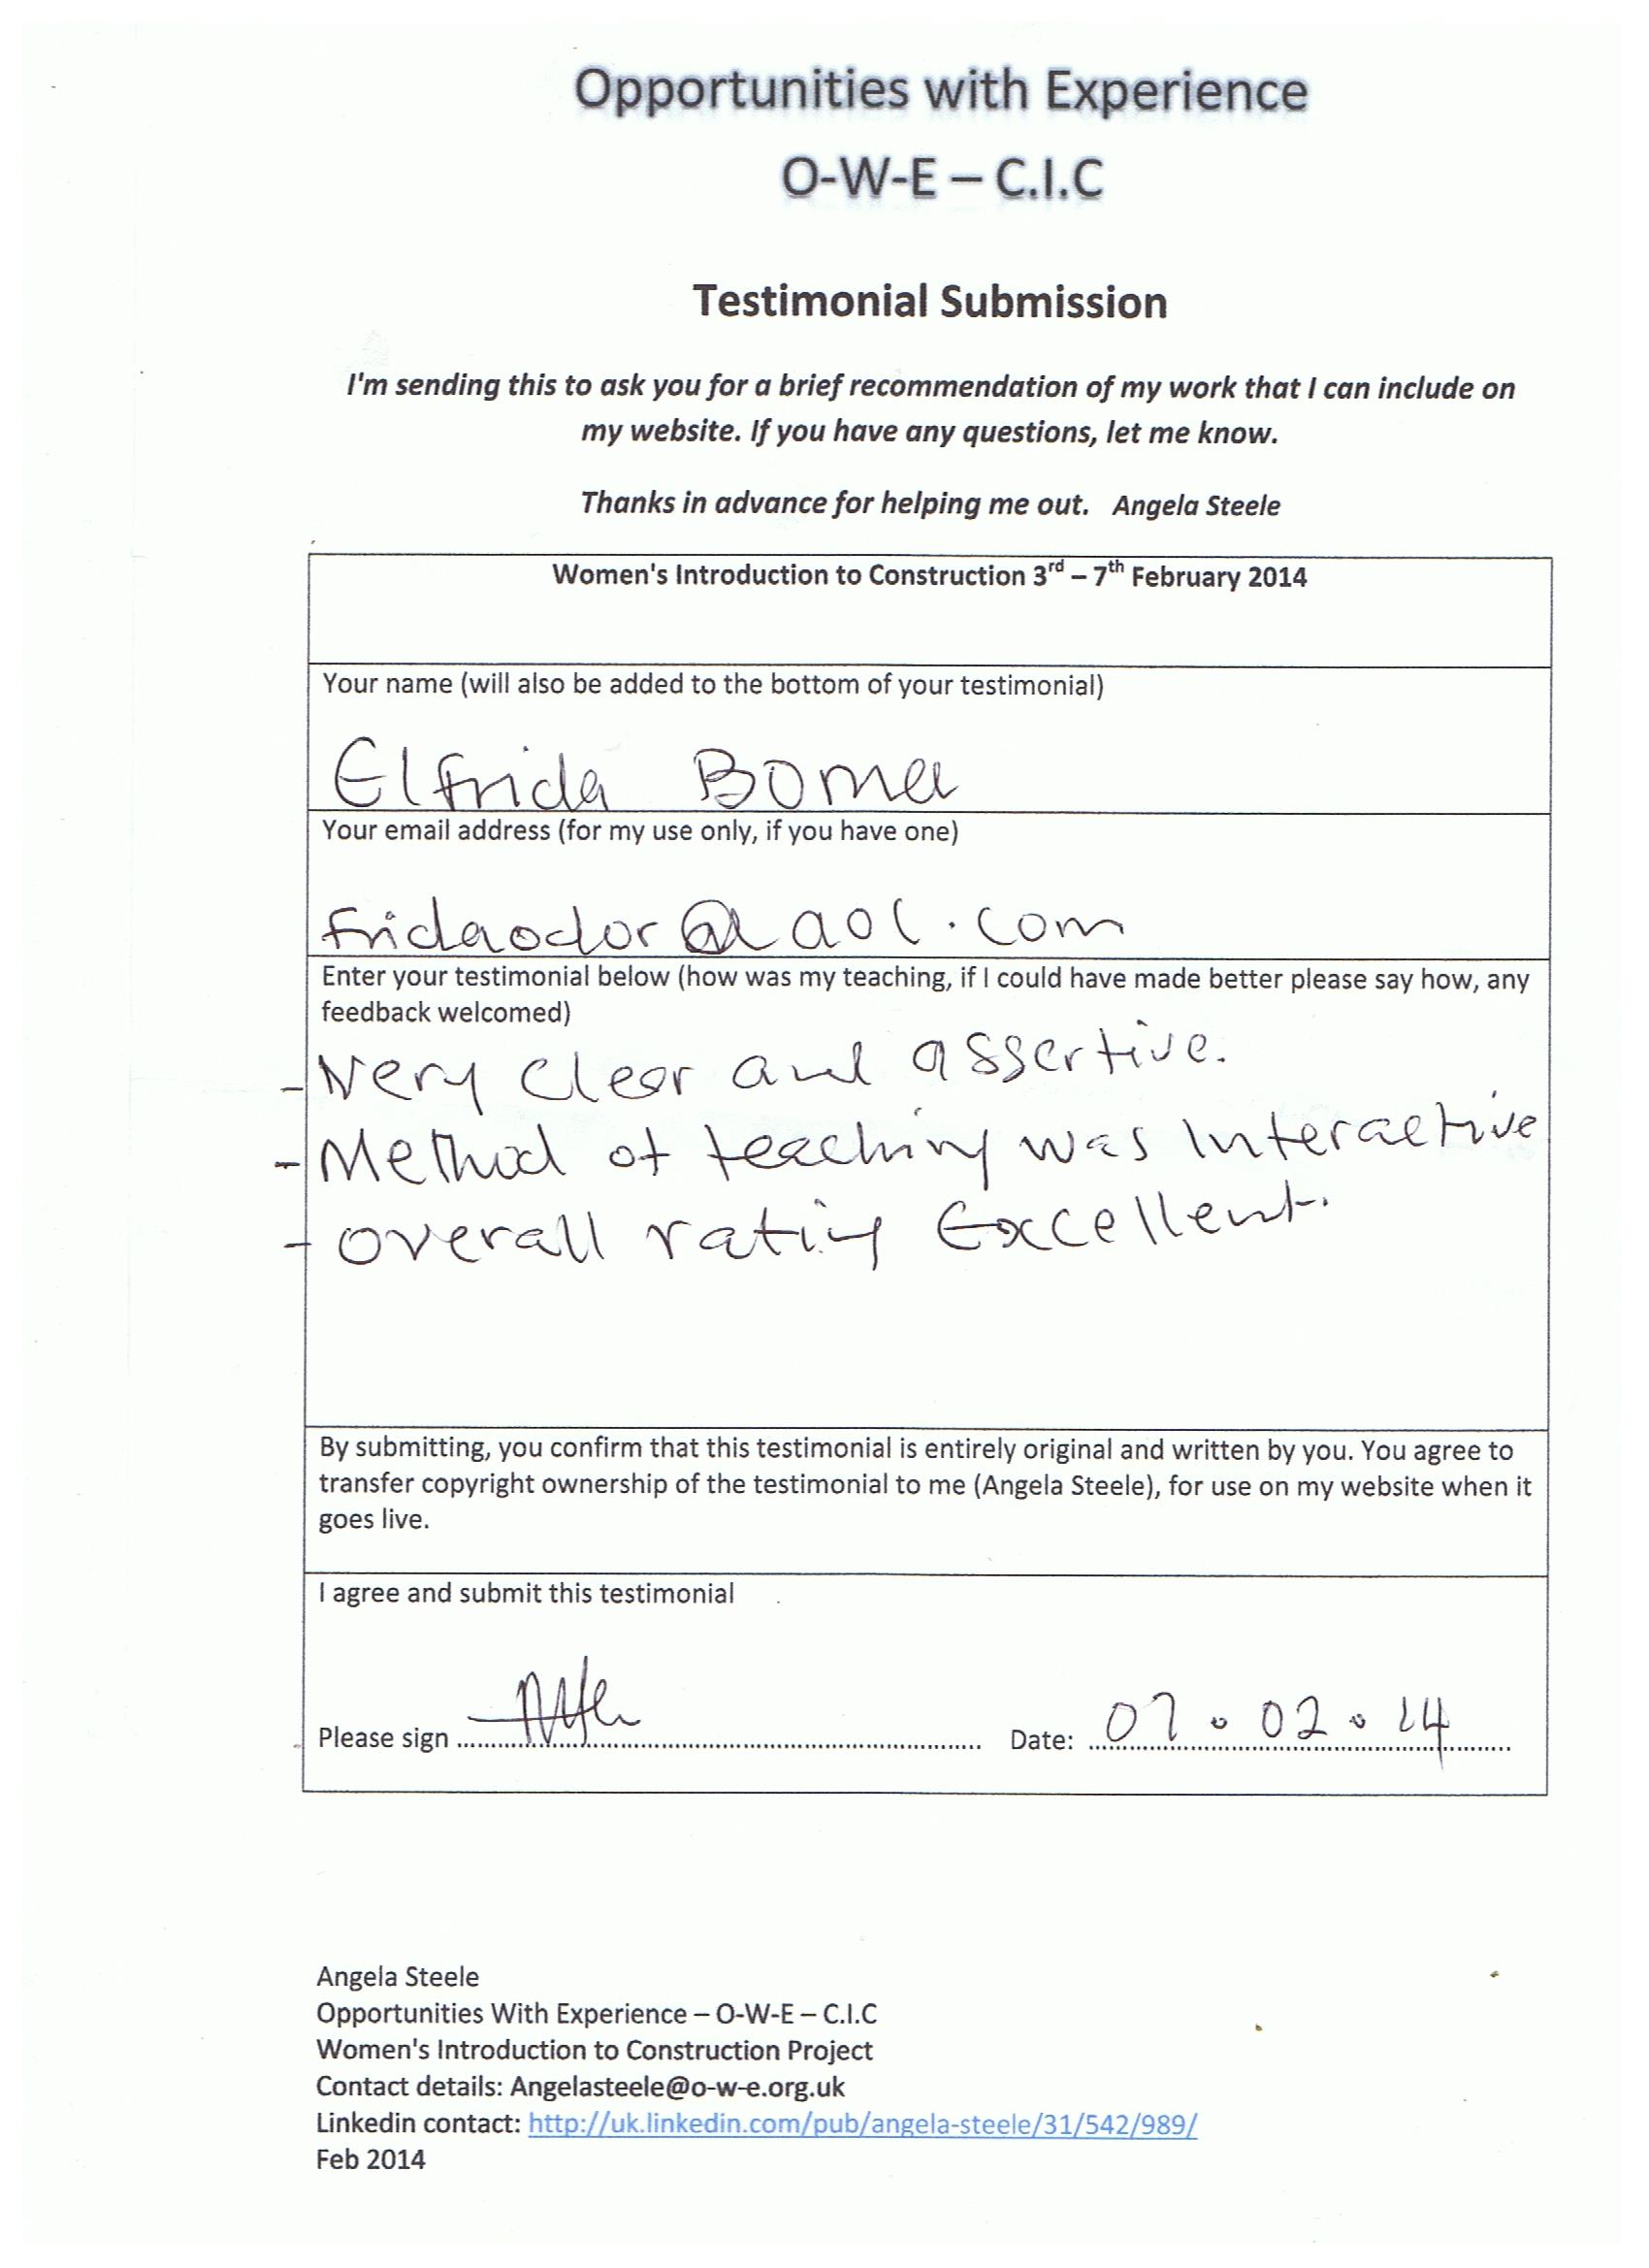 Opportunities with Experience
O-W-E – C.I.C
Testimonial Submission
I'm sending this to ask you for a brief recommendation of my work that I can include on
my website. If you have any questions, let me know.
Thanks in advance for helping me out.   Angela Steele
Women's Introduction to Construction 3rd – 7th February 2014
Your name (will also be added to the bottom of your testimonial)
Elfrida Boma
Your email address (for my use only, if you have one)
fridaodor@aol.com
Enter your testimonial below (how was my teaching, if I could have made better please say how, any
feedback welcomed)
- Very Clear and assertive.
- Method of teaching was Interactive
- Overall rating Excellent.
By submitting, you confirm that this testimonial is entirely original and written by you. You agree to
transfer copyright ownership of the testimonial to me (Angela Steele), for use on my website when it
goes live.
I agree and submit this testimonial
Please sign ........ Date: 07.02.14
Angela Steele
Opportunities With Experience – O-W-E – C.I.C
Women's Introduction to Construction Project
Contact details: Angelasteele@o-w-e.org.uk
Linkedin contact: http://uk.linkedin.com/pub/angela-steele/31/542/989/
Feb 2014